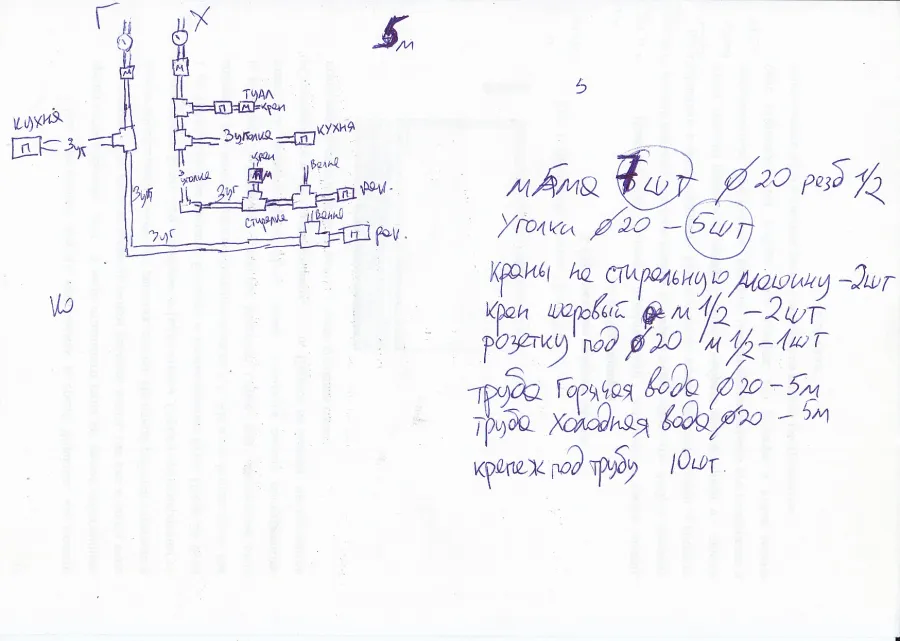 Г Х
5м
5
М М
ТУАЛ
П М кран
КУХНЯ
П 3уг
3уголка П КУХНЯ
кран
Ванна
3 уголка
П М
3уг
3уг П рак.
стиралка
Ванна
3уг П рак.
Ко
мАма 7 шт ∅ 20 резб 1/2
Уголки ∅ 20 – 5шт
краны на стиральную машину – 2шт
кран шаровый м 1/2 – 2шт
розетку под ∅20 м 1/2 – 1шт
труба Горячая вода ∅ 20 – 5м
труба Холодная вода ∅20 – 5м
крепеж под трубу 10шт.